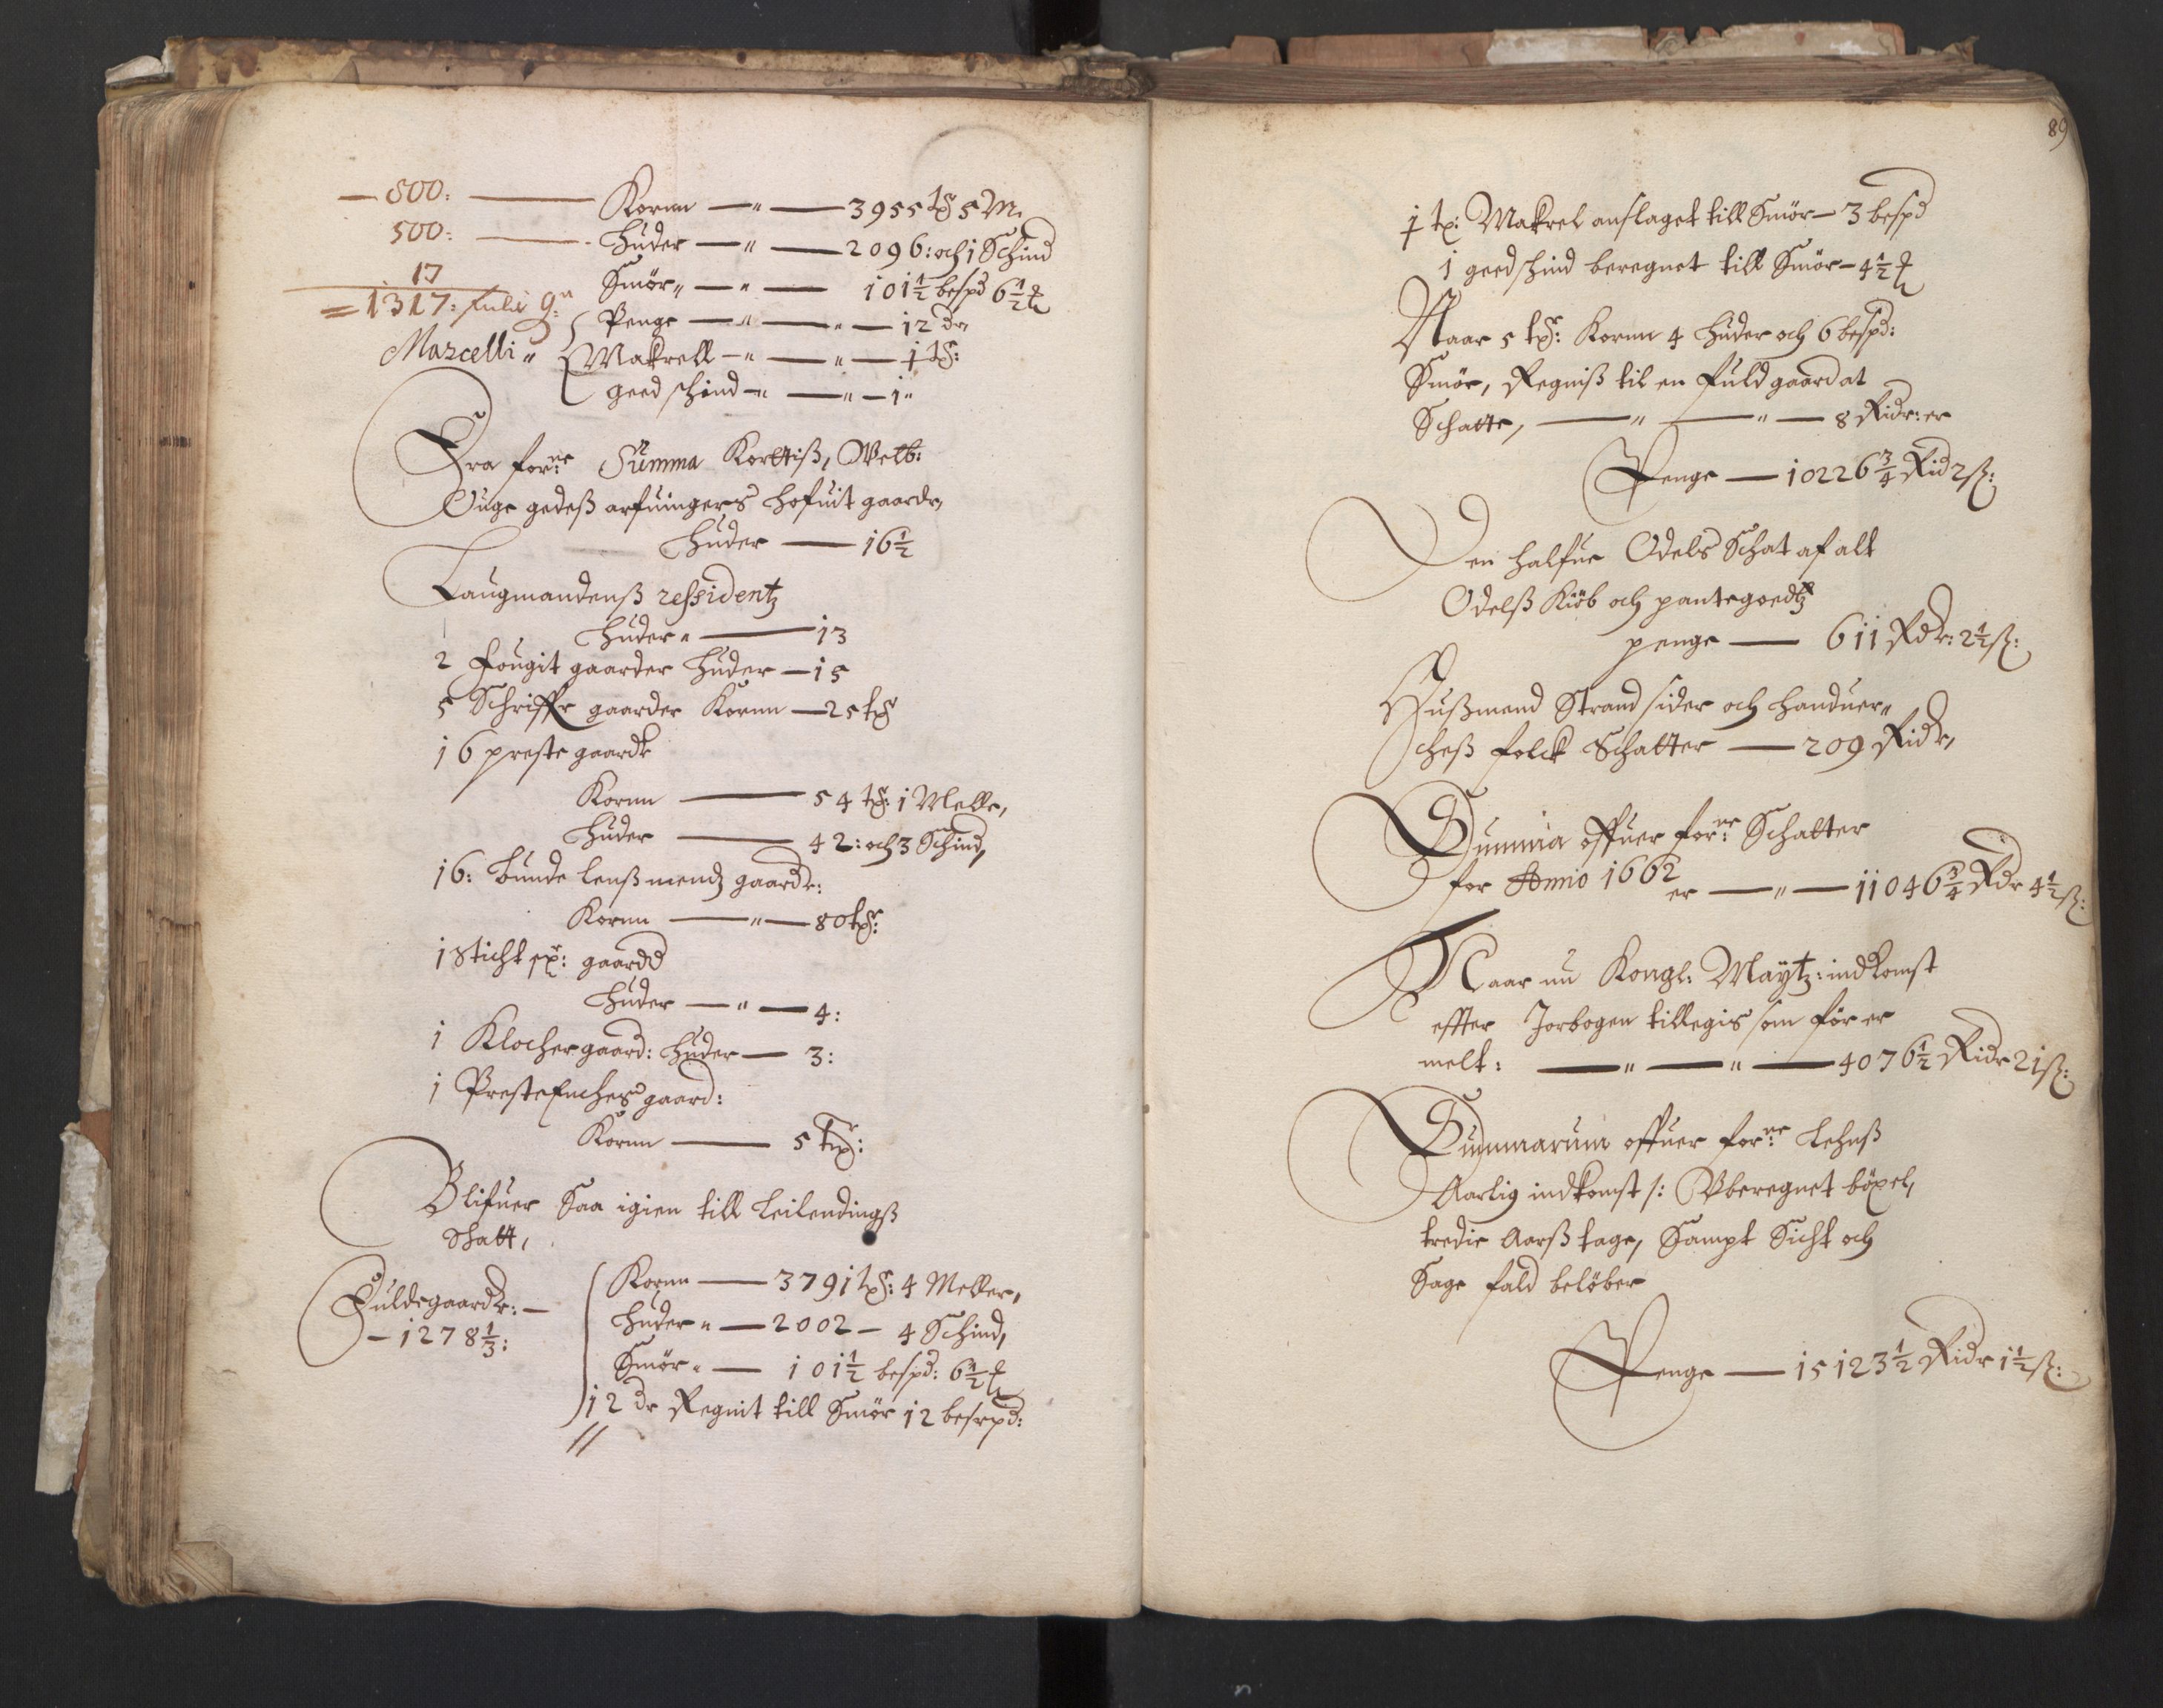 — 800: — Kornn — " — 3955 tꝭ 5 M.
500: — Huder — " — 2096: och 1 Schind
17 Smör " — " — 101½ bespd 6½
= 1317: fulde g: Penge — " — " — 12 dr
Marcelli " Makrell — " — " — 1 tꝭ:
geed schind — " — " — 1 "
Fra forne: Summa Kortiß, Welb:
Ouge gedeß arfuingers hofuit gaardr,
Huder — 16½
Laugmandenß ressidentz
Huder " — 13
2 Fougit gaarder Huder — 15
5 Schriffr gaarder Kornn — 25 tꝭ
16 preste gaardr
Kornn — 54 tꝭ: 1 Melle,
Huder — 42: och 3 Schind,
16: Bunde lenßmendz gaardr:
Kornn — " — 80 tꝭ:
1 Sticht gaardd
Huder — " — 4:
1 Klocher gaard: Huder — 3:
1 Prestenches gaard:
Kornn — 5 tꝭ:
Blifuer Saa igien till Leilendingß
Schatt,
Fuldegaardr: — Kornn — 3791 tꝭ: 4 Meller,
— 1278⅓: Huder " — 2002 — 4 Schind,
Smör " — 101½ bespd: 6½
12 dr Regnit till Smör 12 bespd:
//
89
1 tꝭ: Makrel anslaget till Smör — 3 bespd
1 geedschind beregnet till Smör — 4½
Naar 5 tꝭ: Kornn 4 Huder och 6 bespd:
Smör, Regniß til en fuld gaard at
Schatte, — " — " — 8 Ridr: er
Penge — 10226¾ Rid 2 ß:
Den halfue Odels Schat af alt
Odelß Kiöb och pantegoedtz
penge — 611 Rdr: 2½ ß:
Hußmend Strand sider och handuer"
cheß folck Schatter — 209 Ridr,
Summa offuer forne: Schatter
for Anno 1662 er — " — 11046¾ Rdr 4½ ß:
Naar nu Kongl: Maytz: indkomst
effter Jorbogen tillegis som för er
melt: — " — " — 4076½ Ridr 21 ß:
Summarum offuer forne: Lehnß
Aarlig indkomst /: Vberegnet böxel,
tredie Aarß tage, Sampt Sicht och
Sage fald belöber
Penge — 15123½ Ridr 1½ ß: